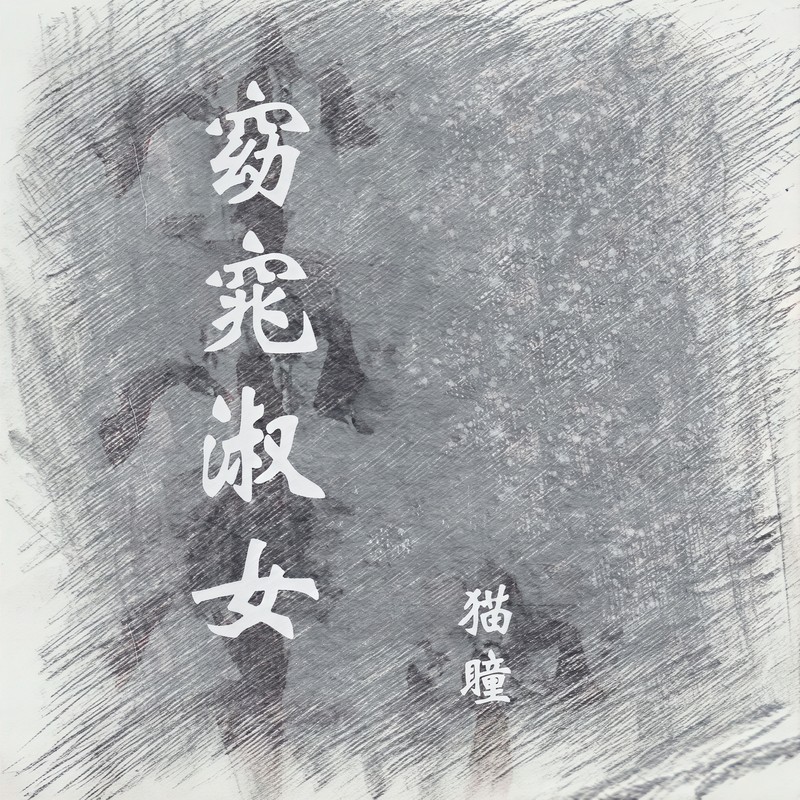 窈窕淑女
猫瞳